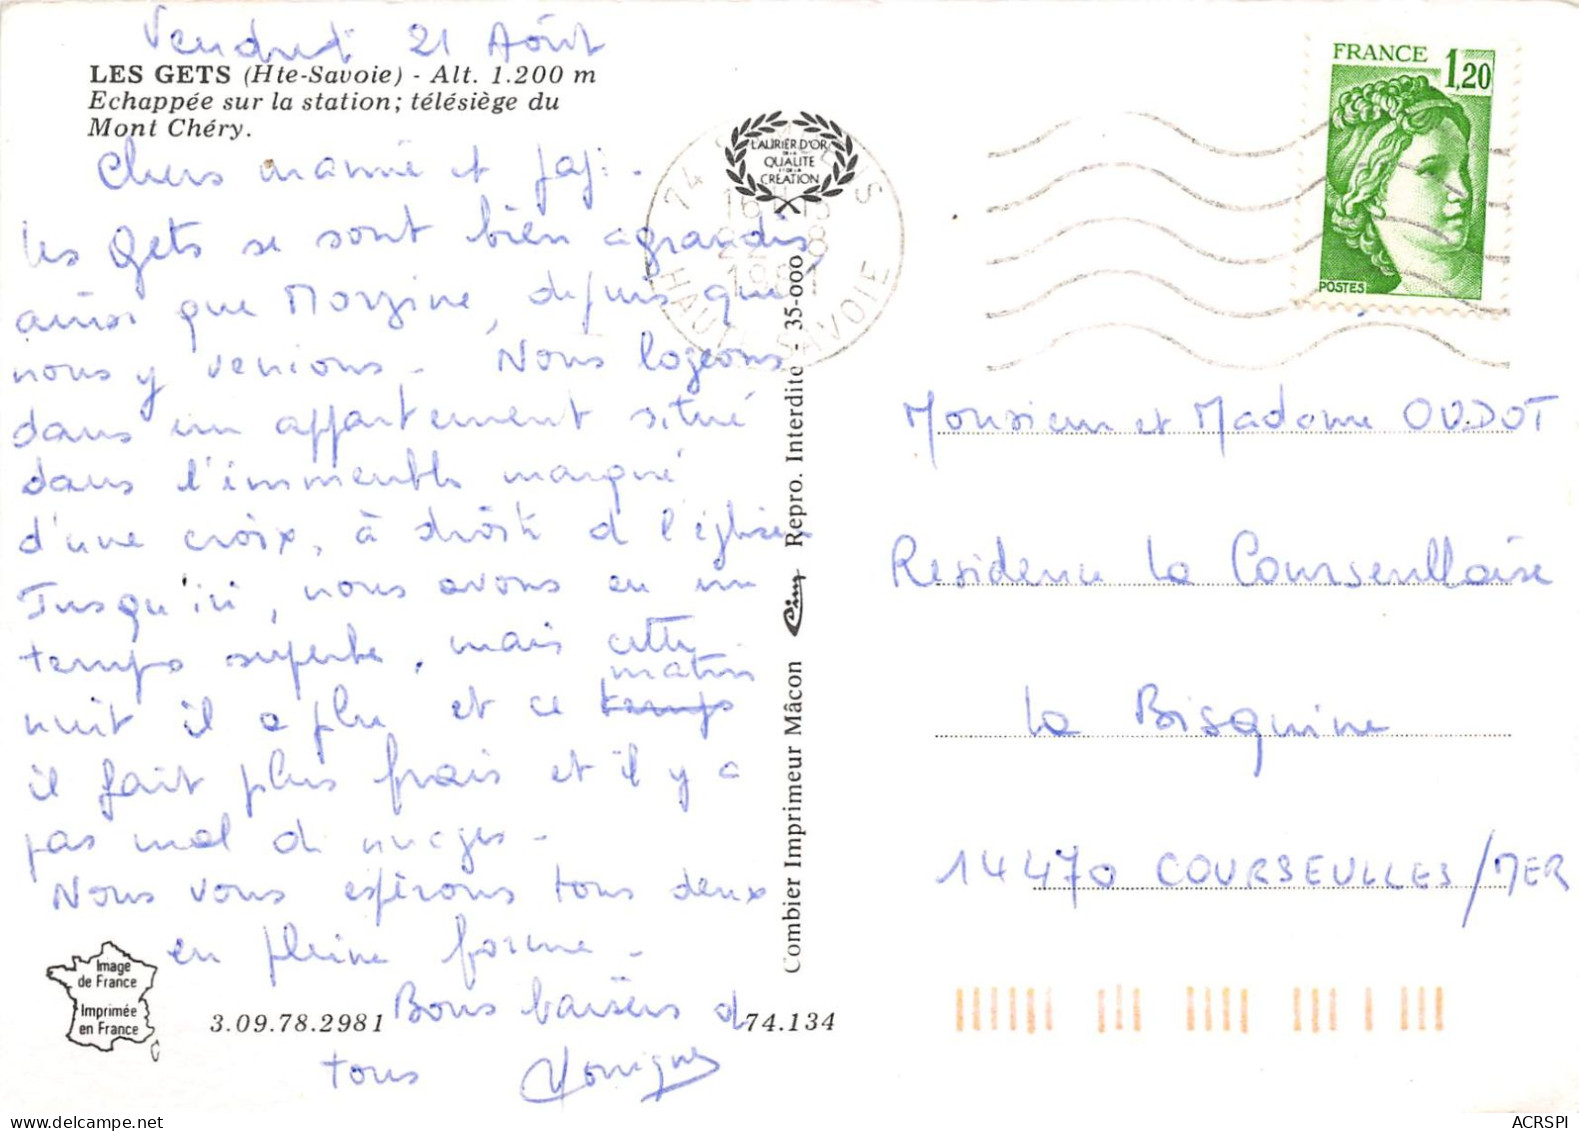 Vendredi 21 Août
LES GETS (Hte-Savoie) - Alt. 1.200 m
Echappée sur la station; télésiège du
Mont Chéry.
Chers mamie et papi.
Les Gets se sont bien agrandis,
ainsi que Morzine, depuis que
nous y venions. Nous logeons
dans un appartement situé
dans l'immeuble marqué
d'une croix, à droite de l'église.
Jusqu'ici, nous avons eu un
temps superbe, mais cette
nuit il a plu et ce matin
il fait plus frais et il y a
pas mal de nuages.
Nous vous espérons tous deux
en pleine forme.
Bons baisers de
tous Monique
Image
de France
Imprimée
en France
3.09.78.2981
74.134
Combier Imprimeur Mâcon Cim Repro. Interdite - 35-000
LAURIER D'OR
DE LA
QUALITE
ET DE LA
CREATION
74
HAUTE SAVOIE
FRANCE 1,20
POSTES
Monsieur et Madame OUDOT
Residence La Courseullaise
La Bisquine
14470 COURSEULLES/MER
ACRSPI